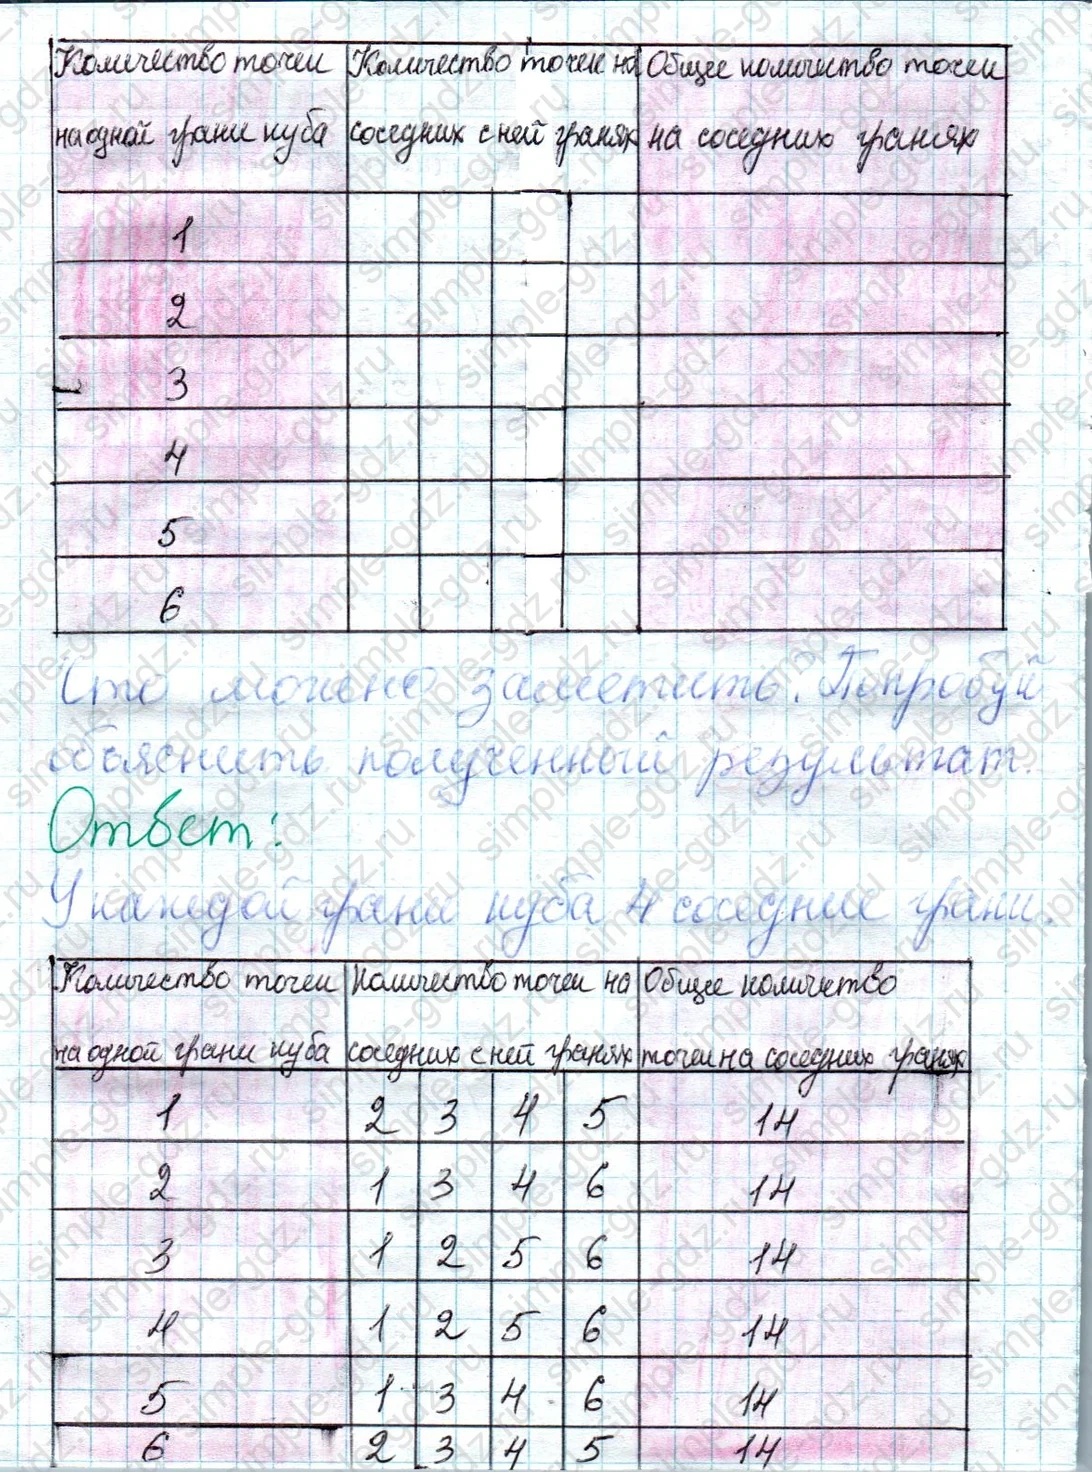 Количество точек Количество точек на Общее количество точек
на одной грани куба соседних с ней гранях на соседних гранях
1
2
3
4
5
6
Что можно заметить? Попробуй
объяснить полученный результат.
Ответ:
У каждой грани куба 4 соседние грани.
Количество точек Количество точек на Общее количетво
на одной грани куба соседних с ней гранях точек на соседних гранях
1 2 3 4 5 14
2 1 3 4 6 14
3 1 2 5 6 14
4 1 2 5 6 14
5 1 3 4 6 14
6 2 3 4 5 14
simple-gdz.ru